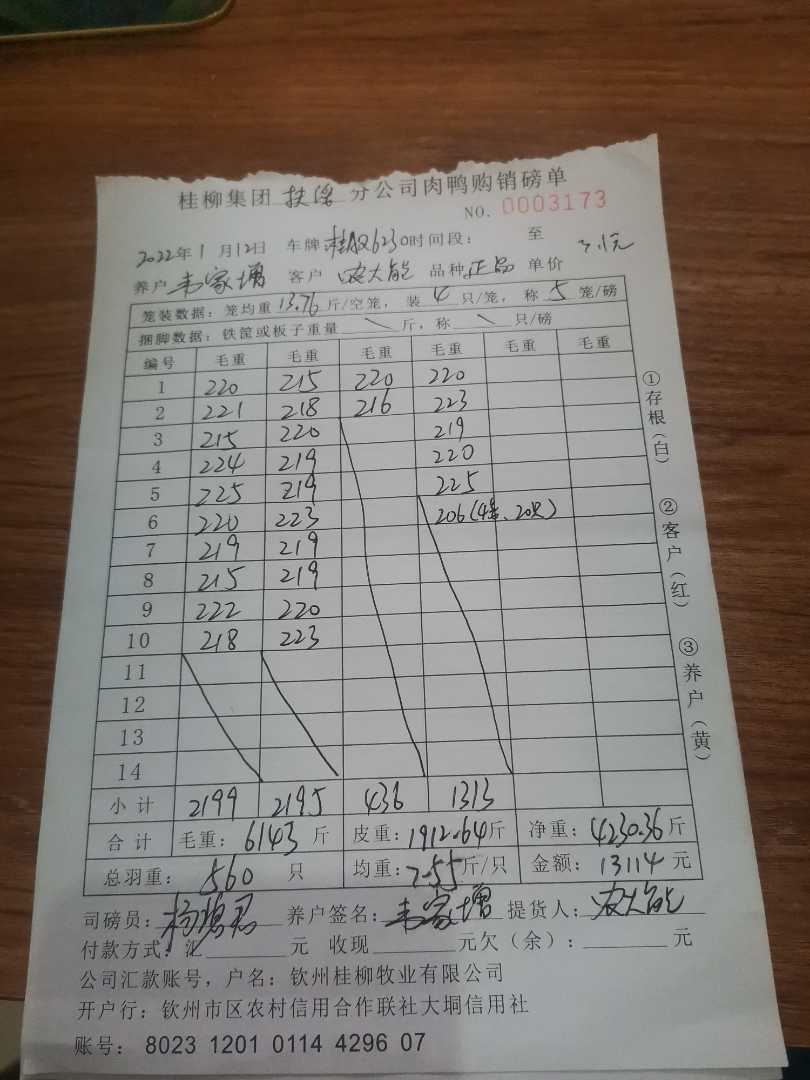 桂柳集团 扶绥 分公司肉鸭购销磅单
NO. 0003173
2022年1月12日 车牌 桂 6230 时间段： 至
养户 韦家增 客户 农大能 品种 正品 单价 3.1元
笼装数据：笼均重 13.76 斤/空笼，装 4 只/笼，称 5 笼/磅
捆脚数据：铁筐或板子重量 \ 斤，称 \ 只/磅
编号 毛重 毛重 毛重 毛重 毛重 毛重
1 220 215 220 220
2 221 218 216 223
3 215 220 219
4 224 219 220
5 225 219 225
6 220 223 206(4笼、20只)
7 219 219
8 215 219
9 222 220
10 218 223
11
12
13
14
小计 2199 2195 436 1313
合计 毛重：6143斤 皮重：1912.64斤 净重：4230.36斤
总羽重： 560 只 均重：7.55斤/只 金额：13114元
司磅员： 养户签名：韦家增 提货人：农大能
付款方式：汇 元 收现 元欠（余）： 元
公司汇款账号，户名：钦州桂柳牧业有限公司
开户行：钦州市区农村信用合作联社大垌信用社
账号： 8023 1201 0114 4296 07
①存根（白）
②客户（红）
③养户（黄）